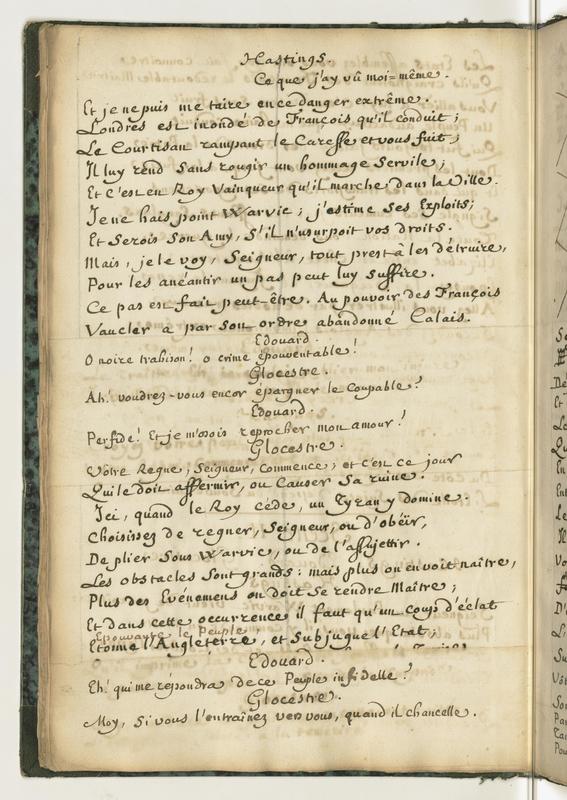 Hastings.
Ce que j'ay vû moi=même.
Et je ne puis me taire en ce danger extrême.
Londres est inondé de François qu'il conduit;
Le Courtisan rampant le Caresse et vous fuit;
Il luy rend Sans rougir un hommage Servile;
Et C'est en Roy Vainqueur qu'il marche dans la Ville.
Je ne hais point Warvic; j'estime Ses Exploits;
Et Serois Son Amy, S'il n'usurpoit vos droits.
Mais, je le voy, Seigneur, tout prest à les détruire,
Pour les anéantir un pas peut luy Suffire.
Ce pas est fait peut-être. Au pouvoir des François
Vaucler a par Son ordre abandonné Calais.
Edouard.
O noire trahison! o crime épouventable!
Glocestre.
Ah! voudrez-vous encor épargner le Coupable?
Edouard.
Perfide! Et je m'osois reprocher mon amour!
Glocestre.
Votre Regne, Seigneur, Commence; et c'est ce jour
Qui le doit affermir, ou Causer Sa ruine.
Ici, quand le Roy cède, un Tyran y domine.
Choisissez de regner, Seigneur, ou d'obéir,
De plier Sous Warvic, ou de l'assujettir.
Les obstacles Sont grands: mais plus on en voit naître,
Plus des Evénemens on doit Se rendre Maître;
Et dans cette occurrence il faut qu'un coup d'éclat
Epouvante le Peuple
Etonne l'Angleterre, et Subjugue l'Etat;
Edouard.
Eh! qui me répondra de ce Peuple infidelle?
Glocestre.
Moy, Si vous l'entraînez vers vous, quand il chancelle.